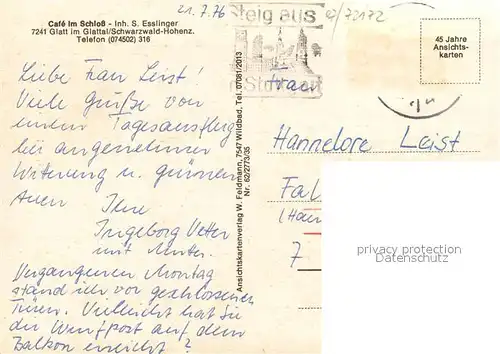 Café im Schloß - Inh. S. Esslinger
7241 Glatt im Glattal/Schwarzwald-Hohenz.
Telefon (074502) 316
21.7.76
Steig aus
70172
45 Jahre
Ansichts-
karten
Liebe Frau Leist!
Viele Grüße von
einem Tagesausflug
bei angenehmer
Witterung u. grünen
Auen
Ihre
Ingeborg Vetter
mit Mutter.
Vergangenen Montag
stand ich vor geschlossenen
Türen. Vielleicht hat Sie
die Wurfpost auf dem
Balkon erreicht?
Ansichtskartenverlag W. Feldmann, 7547 Wildbad, Tel. 07081/2013
Nr. 62/2773/35
Frau
Hannelore Leist
Fal
(Haus
7
privacy protection